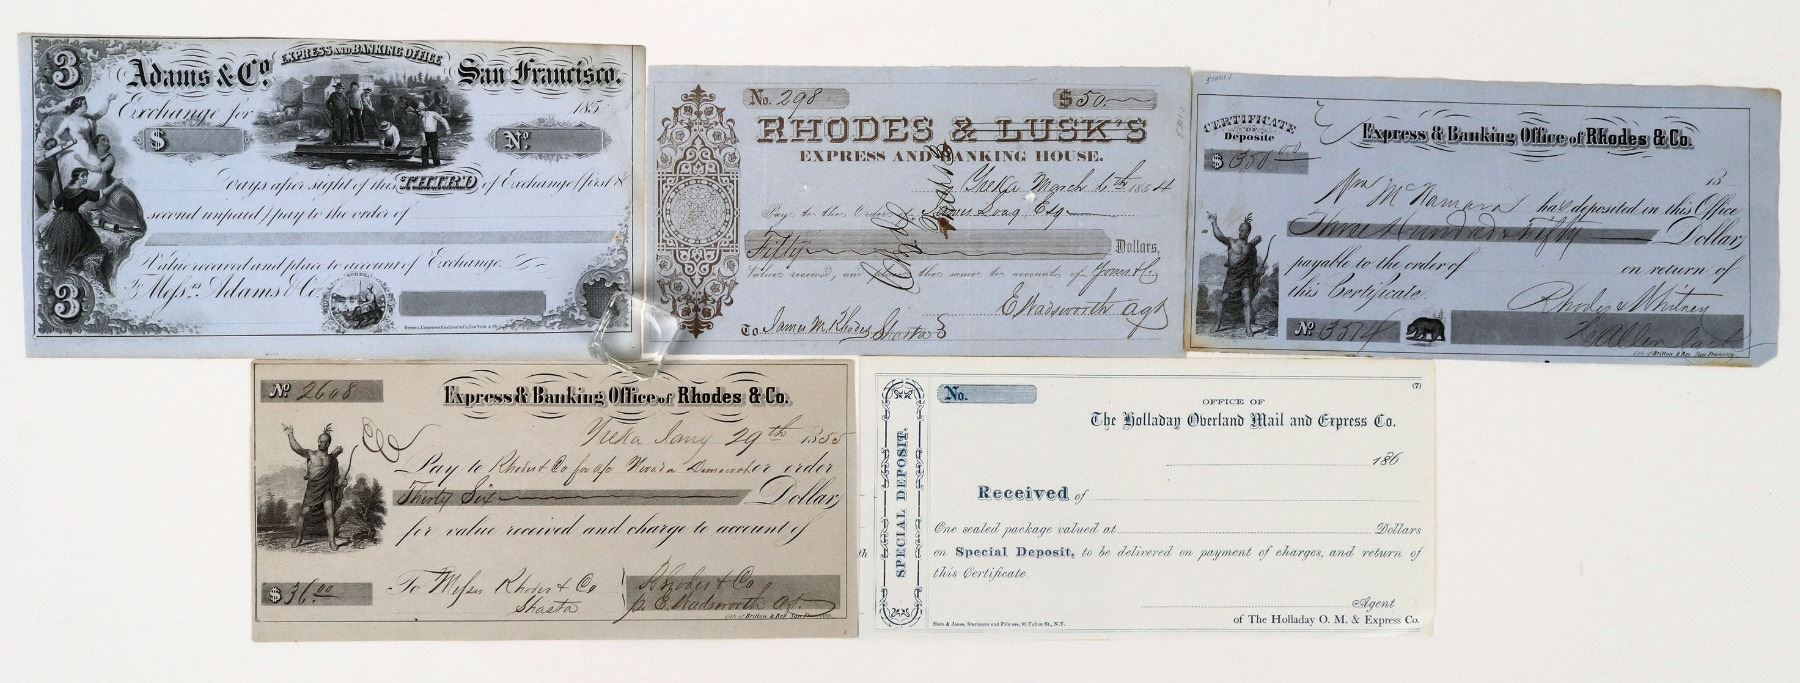 3
EXPRESS AND BANKING OFFICE
Adams & Co. San Francisco.
Exchange for 185
$ No.
Days after sight of this THIRD of Exchange (first &
second unpaid) pay to the order of
Value received and place to account of Exchange.
To Messrs. Adams & Co.
3
No. 298 $ 50
RHODES & LUSK'S
EXPRESS AND BANKING HOUSE.
Yreka March 6th 1854
Pay to the Order of Long Esq
Fifty Dollars,
Value received, and the same to account of Yours &c.
E. Wadsworth Agt
To James M. Rhodes, Shasta
510011
CERTIFICATE
OF
Deposite
Express & Banking Office of Rhodes & Co.
$ 350.00
18
Wm McNamara has deposited in this Office
Three Hundred & Fifty Dollars
payable to the order of on return of
this Certificate.
Rhodes & Whitney
No 3514
Lith. of Britton & Rey San Francisco
No 2608
Express & Banking Office of Rhodes & Co.
Yreka Jany 29th 1855
Pay to Rhodes & Co for a/c Nevada Democrat or order
Thirty Six Dollars
for value received and charge to account of
$ 36.00
To Messrs Rhodes & Co
Shasta
Rhodes & Co
p. E. Wadsworth Agt
Lith. of Britton & Rey San Francisco.
No.
(7)
SPECIAL DEPOSIT.
OFFICE OF
The Holladay Overland Mail and Express Co.
186
Received of
One sealed package valued at Dollars
on Special Deposit, to be delivered on payment of charges, and return of
this Certificate.
Agent
of The Holladay O. M. & Express Co.
Slote & Janes, Stationers and Printers, 93 Fulton St., N.Y.